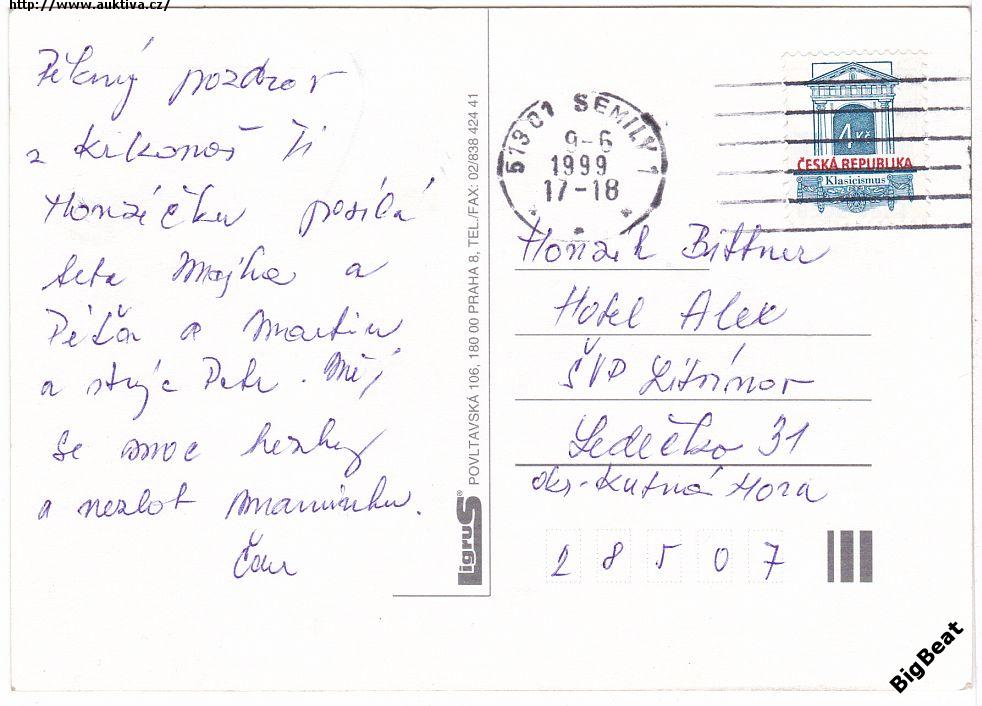 http://www.auktiva.cz/
Pěkný pozdrav
z Krkonoš Ti
Honzíčku posílá
teta Majka a
Péťa a Martin
a strýc Petr. Měj
se moc hezky
a nezlob maminku.
Čau
POVLTAVSKÁ 106, 180 00 PRAHA 8, TEL/FAX: 02/838 424 41
igruS®
513 01 SEMILY 1
9-6
1999
17-18
4 Kč
ČESKÁ REPUBLIKA
Klasicismus
Honzík Bittner
Hotel Alex
ŠVP Litvínov
Ledečko 31
okr. Kutná Hora
28507
BigBeat